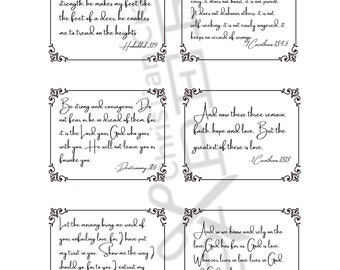 strength; he makes my feet like
the feet of a deer, he enables
me to tread on the heights
-Habakkuk 3:19
envy, it does not boast, it is not proud.
It does not dishonor others, it is not
self-seeking, it is not easily angered, it
keeps no record of wrongs.
1 Corinthians 13:4-5
Be strong and courageous. Do
not fear or be in dread of them, for
it is the Lord your God who goes
with you. He will not leave you or
forsake you.
-Deuteronomy 31:6
And now these three remain:
faith, hope and love. But the
greatest of these is love.
1 Corinthians 13:13
Let the morning bring me word of
your unfailing love, for I have put
my trust in you. Show me the way I
should go, for to you I entrust my
And so we know and rely on the
love God has for us. God is love.
Whoever lives in love lives in God,